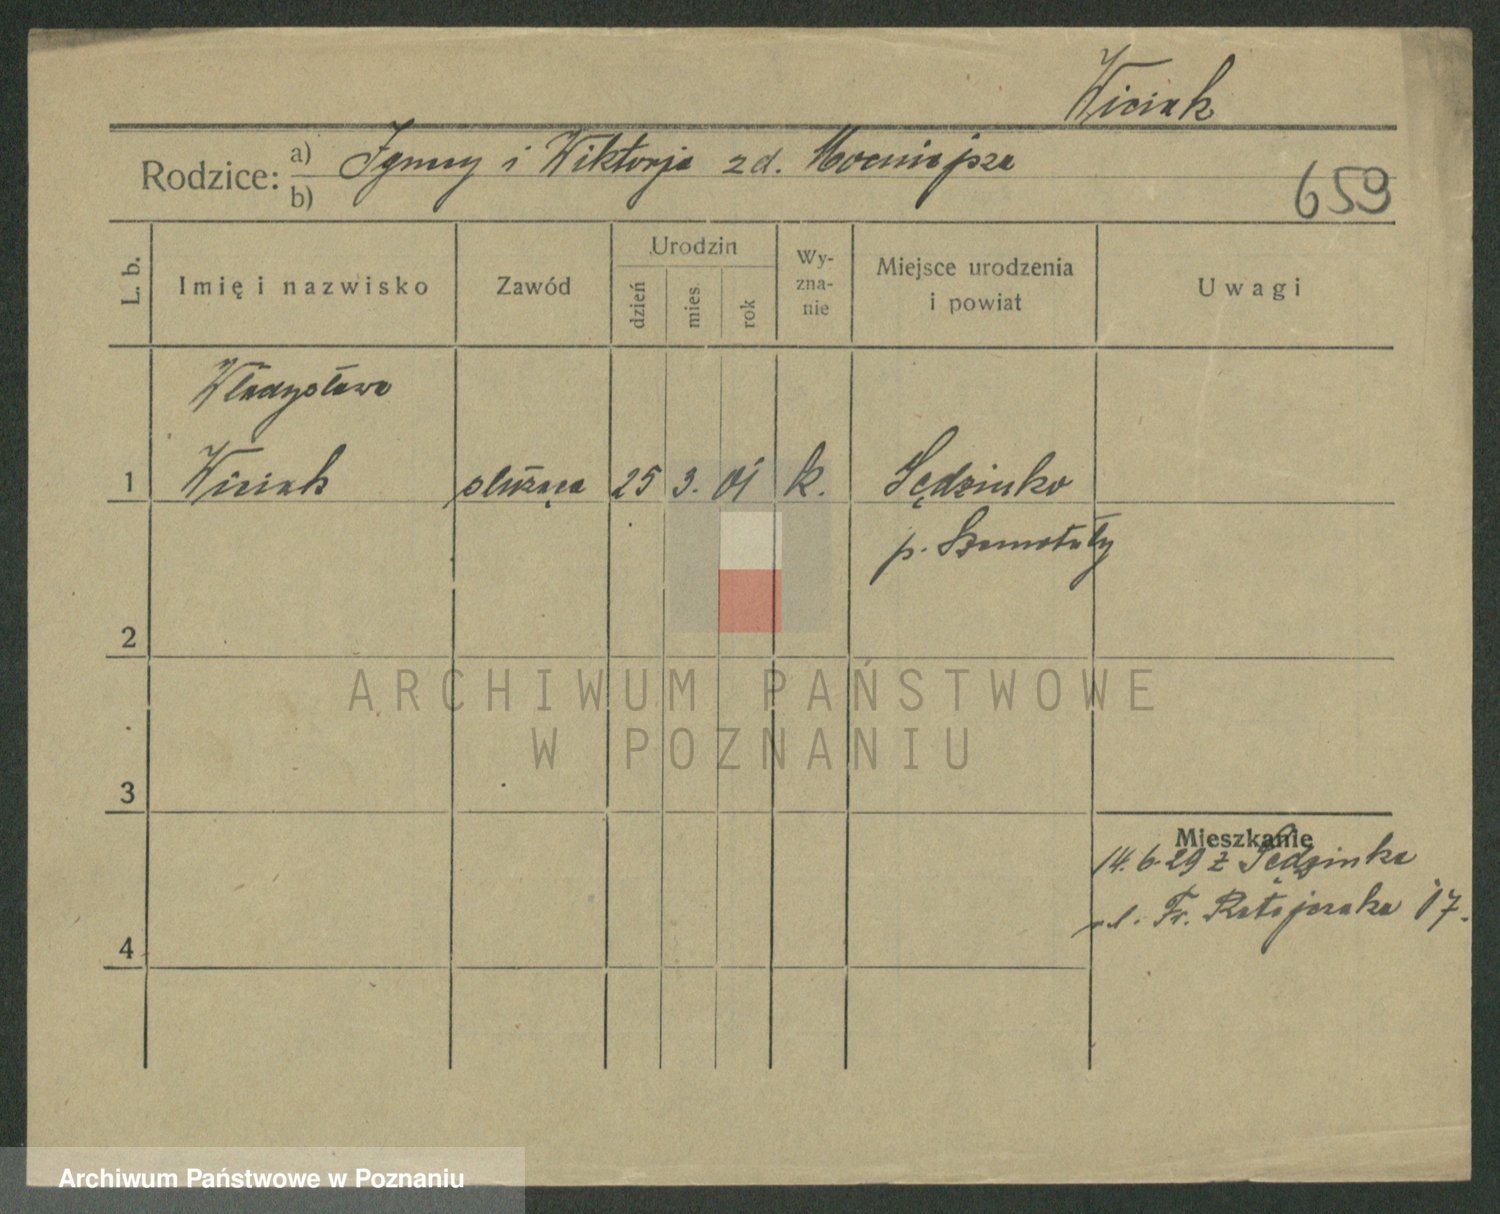 Wiciak
Rodzice: a) Ignacy i Wiktorja zd. Mocniejsza
b)
659
L. b.
Imię i nazwisko
Zawód
Urodzin
dzień
mies.
rok
Wy-
zna-
nie
Miejsce urodzenia
i powiat
Uwagi
Władysława
1 Wiciak służąca 25 3. 01 k. Sędzinko
p. Szamotuły
2
3
4
Mieszkanie
14.6.29 z Sędzinka
ul. Fr. Ratajczaka 17.
ARCHIWUM PAŃSTWOWE
W POZNANIU
Archiwum Państwowe w Poznaniu